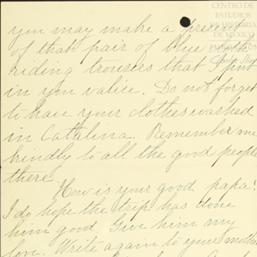 CENTRO DE
ESTUDIOS
DE HISTORIA
DE MEXICO
you may make a present
of that pair of blue
riding trousers that I put
in you valice. Do not forget
to have your clothes washed
in Catalina. Remember me
kindly to all the good people
there.
How is your good papa?
I do hope the trip has done
him good. Give him my
love. Write again to your mother